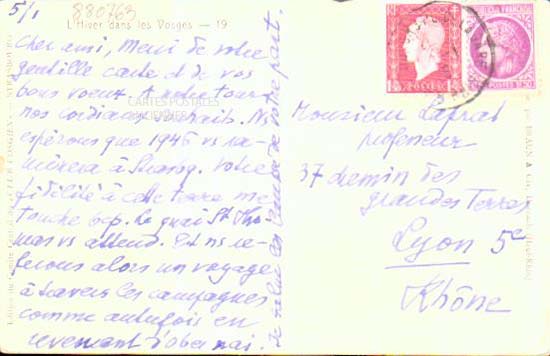 5/1
880763
L'Hiver dans les Vosges — 19
Cher ami, Merci de votre
gentille carte et de vos
bons voeux. A notre tour
nos cordiaux souhaits. Ns
espérons que 1946 vs ra-
mènera à Strasbg. Votre
fidilité à cette terre me
touche bcp. Le quai St Tho-
mas vs attend. Et ns re-
ferons alors un voyage
à travers les campagnes
comme autrefois en
revenant d'Obernai.
Je salue les de votre part.
CARTES POSTALES
ANCIENNES
Monsieur Laprat
professeur
37 chemin des
grandes Terres
Lyon 5e
Rhône
POSTES